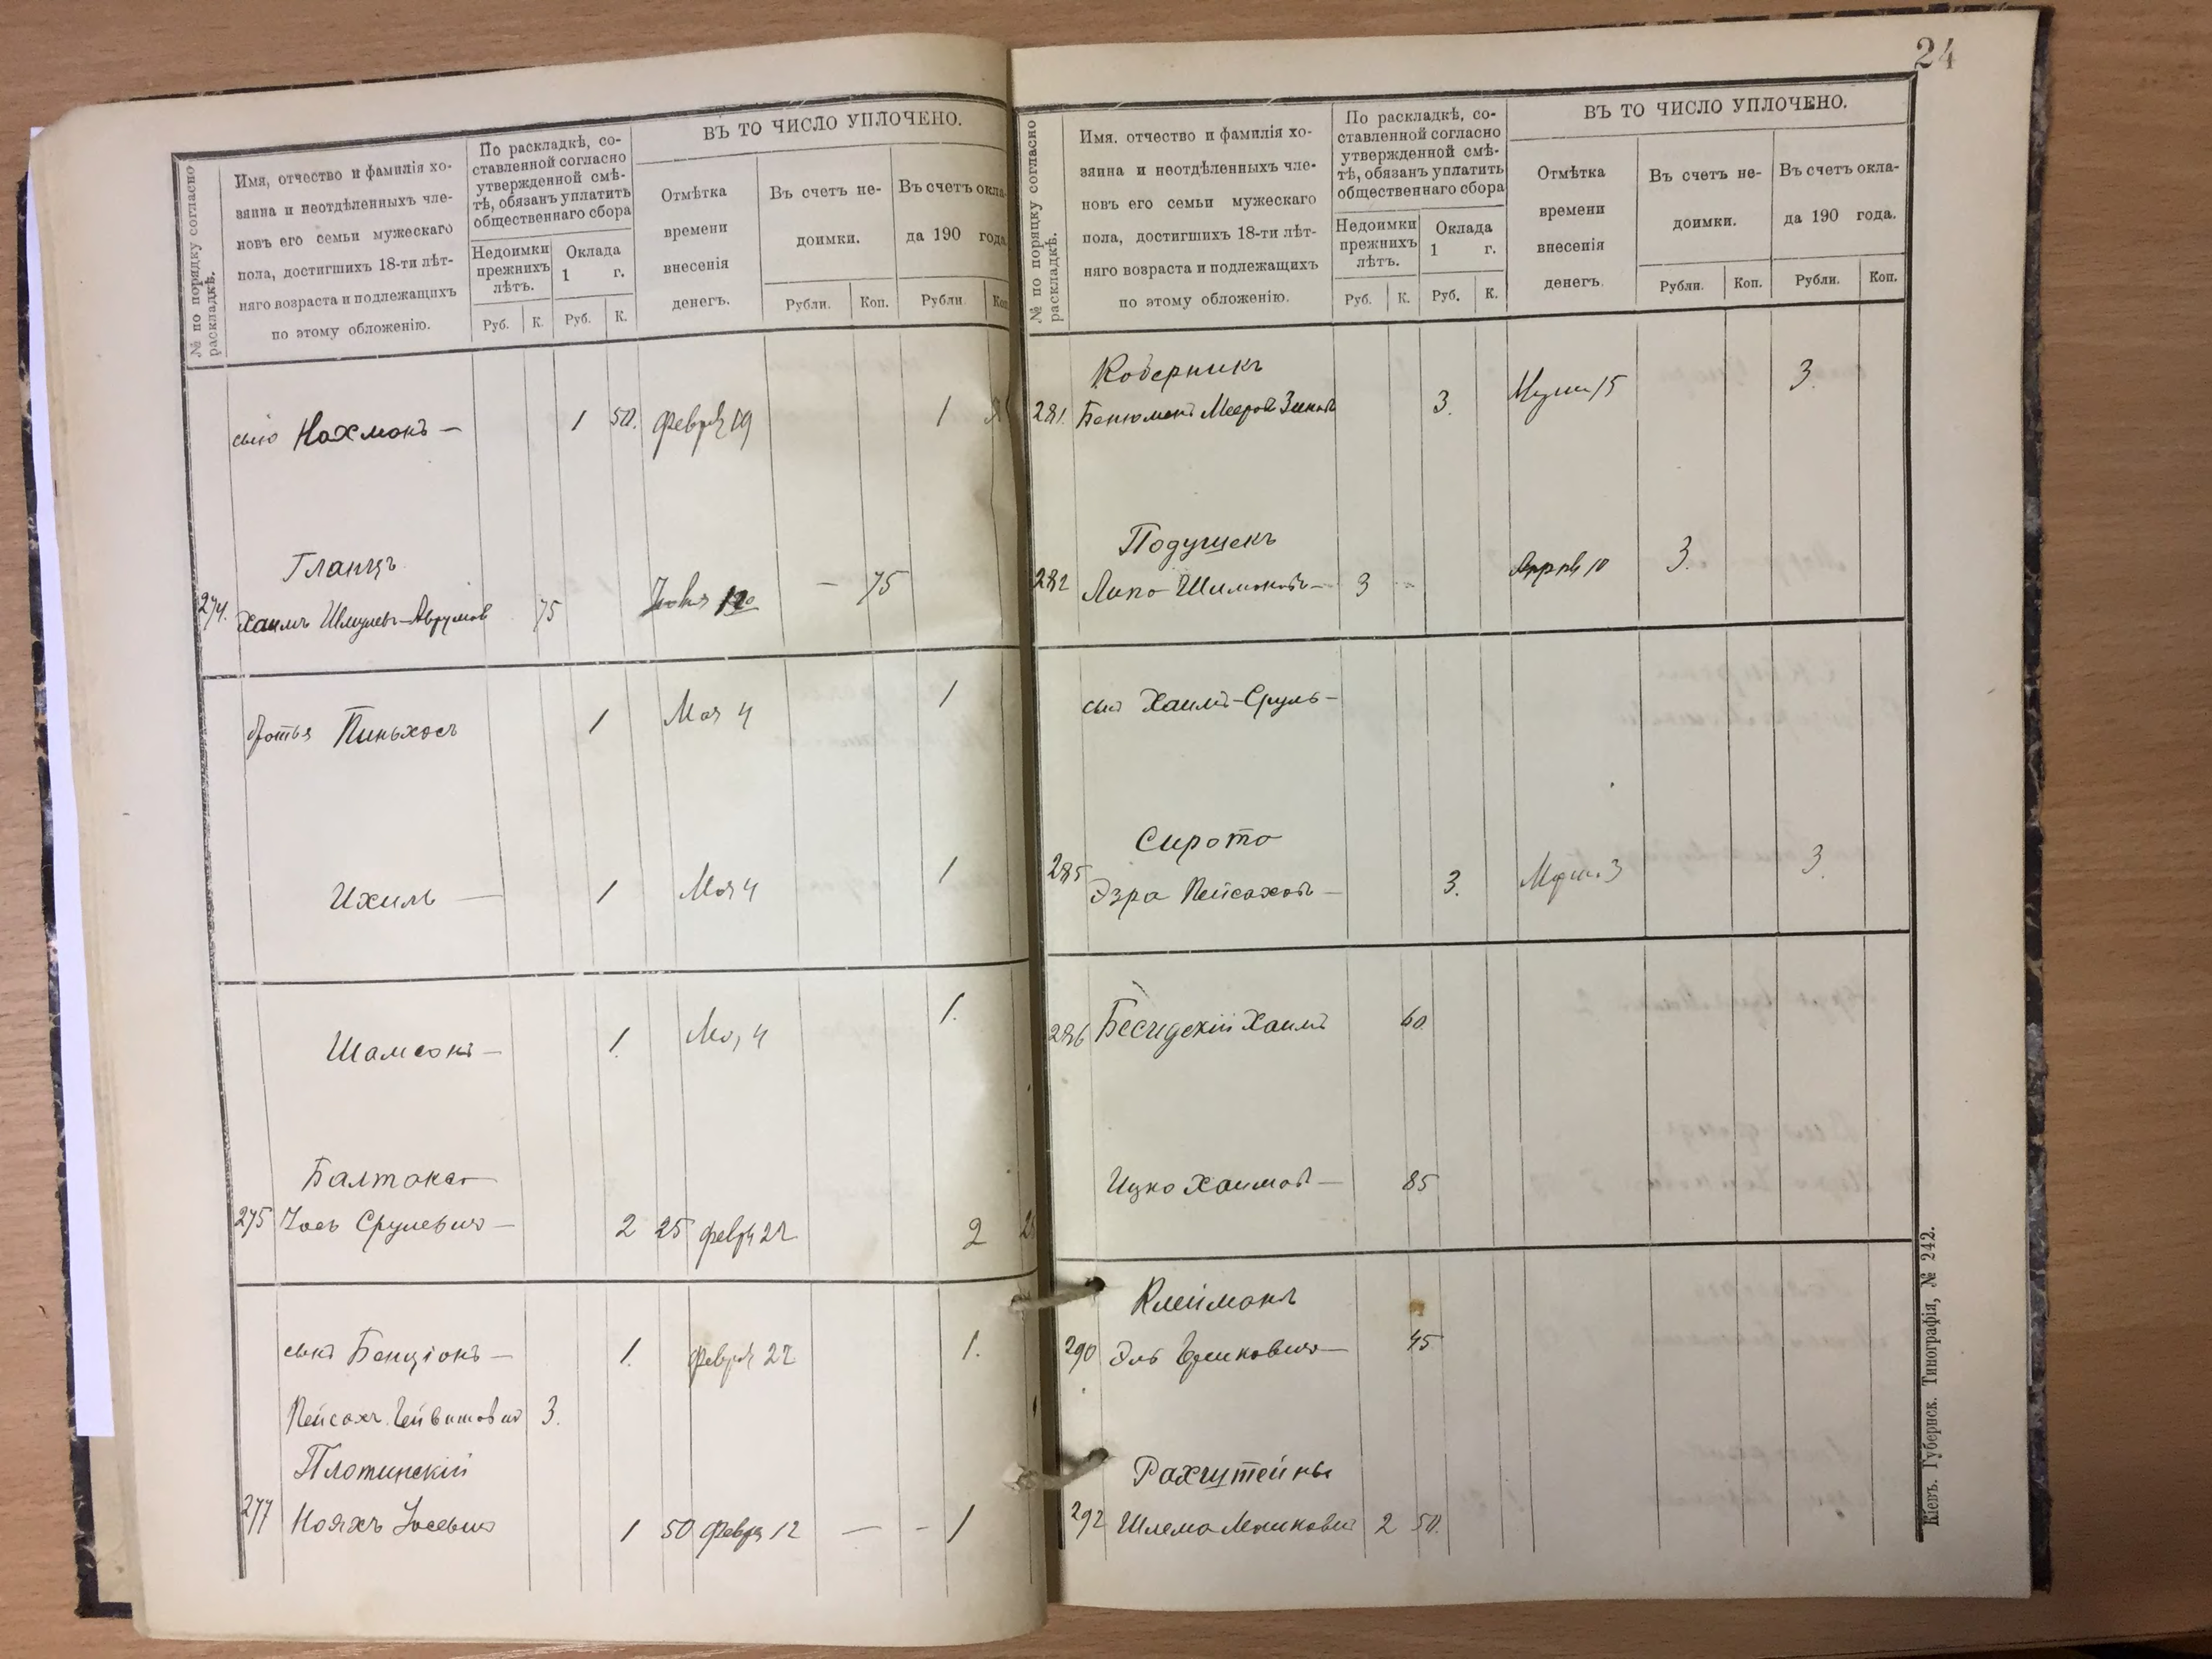 24
№ по порядку согласно раскладкѣ.
Имя, отчество и фамилія хо-
зяина и неотдѣленныхъ чле-
новъ его семьи мужескаго
пола, достигшихъ 18-ти лѣт-
няго возраста и подлежащихъ
по этому обложенію.
По раскладкѣ, со-
ставленной согласно
утвержденной смѣ-
тѣ, обязанъ уплатить
общественнаго сбора
Недоимки
прежнихъ
лѣтъ.
Оклада
1 г.
Руб. К. Руб. К.
ВЪ ТО ЧИСЛО УПЛОЧЕНО.
Отмѣтка
времени
внесенія
денегъ.
Въ счетъ не-
доимки.
Въ счетъ окла-
да 190 года.
Рубли. Коп. Рубли Коп
сынъ Нахманъ — 1 50. Февр 19 1
Гланцъ
274. Хаимъ Шмулевъ-Аврумов 75 12 — 75
братья Пиньхосъ 1 Мая 4 1
Ихиль — 1 Мая 4 1
Шамсонъ — 1. Мая 4 1.
Балтакса
275 Іось Срулевичъ — 2 25 Февр 22 2 25
сынъ Бенціонъ — 1. Февр 22 1.
Пейсахъ 3.
Плотинскій
277 Нояхъ Іосевичъ 1 50 Февр 12 — - 1
№ по поряцку согласно раскладкѣ.
Имя. отчество и фамилія хо-
зяина и неотдѣленныхъ чле-
новъ его семьи мужескаго
пола, достигшихъ 18-ти лѣт-
няго возраста и подлежащихъ
по этому обложенію.
По раскладкѣ, со-
ставленной согласно
утвержденной смѣ-
тѣ, обязанъ уплатить
общественнаго сбора
Недоимки
прежнихъ
лѣтъ.
Оклада
1 г.
Руб. К. Руб. К.
ВЪ ТО ЧИСЛО УПЛОЧЕНО.
Отмѣтка
времени
внесенія
денегъ.
Въ счетъ не-
доимки.
Въ счетъ окла-
да 190 года.
Рубли. Коп. Рубли. Коп.
Коберникъ
281. Бенюминъ Мееров 3. 15 3.
Подушекъ
282 Липа Шимонов — 3 - 10 3.
сын Хаимъ-Сруль —
Сирота
285 Эзра Пейсахов — 3. 3 3.
286 Бесидскій Хаимъ 60.
Ицко Хаимов — 85
Клейманъ
290 Эль — 45
292 Шлема 2 50.
Кіевъ. Губернск. Типографія, № 242.